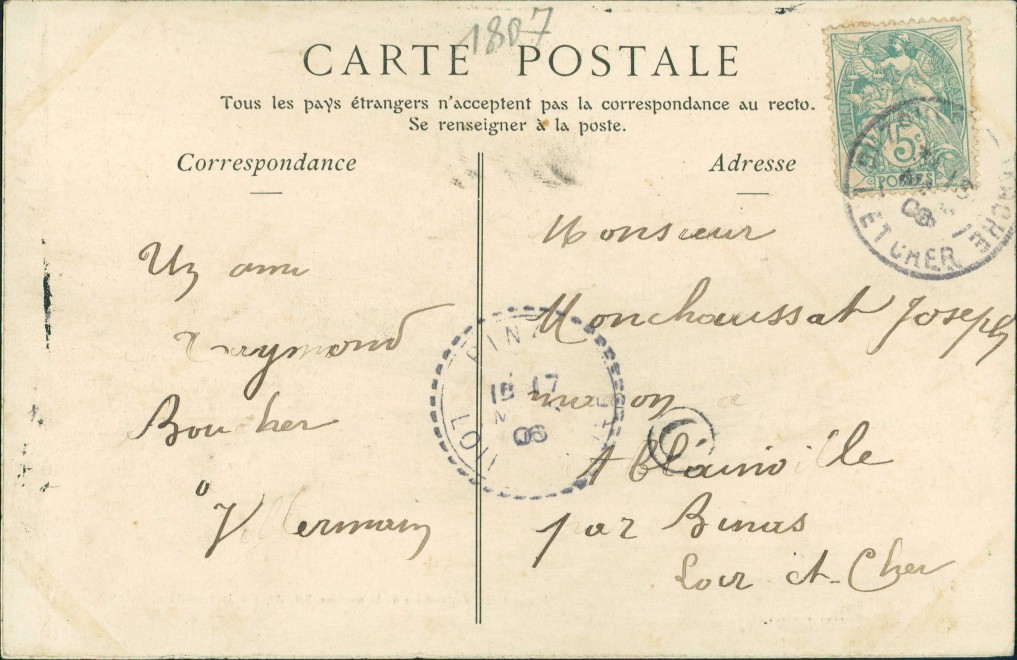 1807
CARTE POSTALE
Tous les pays étrangers n'acceptent pas la correspondance au recto.
Se renseigner à la poste.
Correspondance
Adresse
5c
POSTES
ET CHER
06
Un ami
Raymond
Boucher
Villermain
Monsieur
Monchaussat Joseph
maçon a
Ablainville
par Binas
Loir et-Cher
BINAS
06